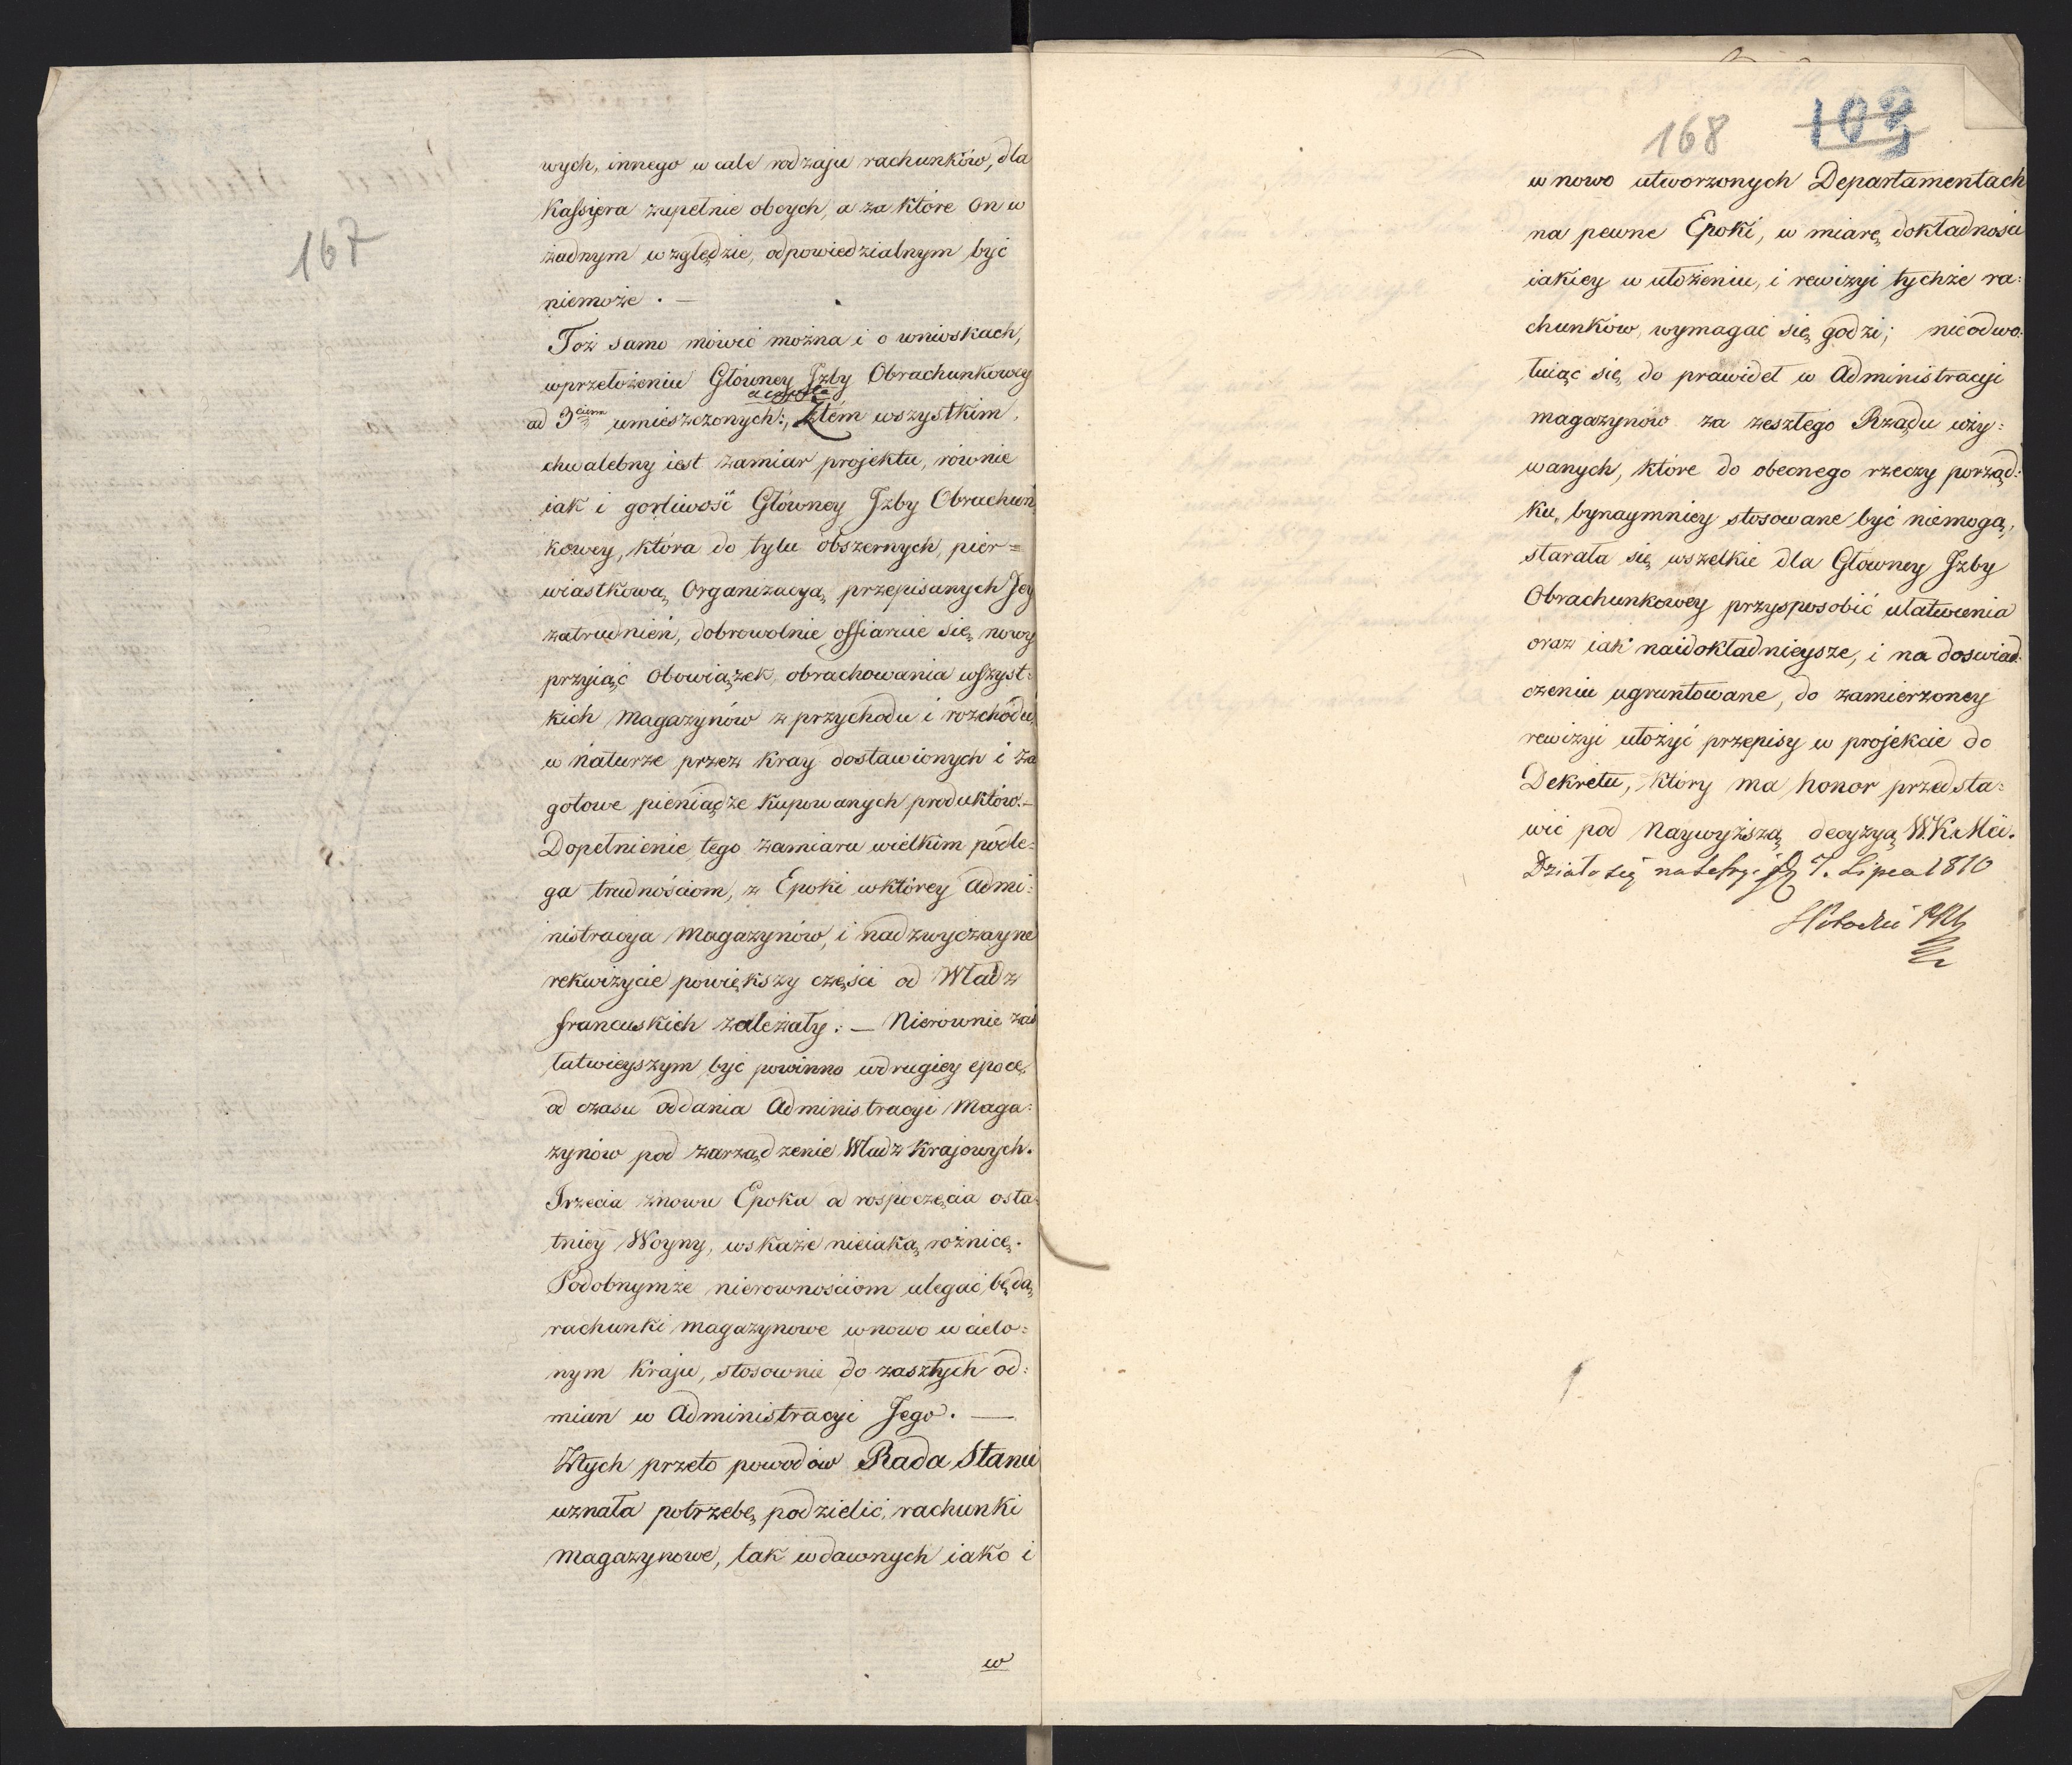 167
wych, innego w cale rodzaju rachunków, dla
Kassyera zupełnie obcych, a za które On w
żadnym względzie, odpowiedzialnym być
niemoże. —
Toż samo mówić można i o wnioskach,
wprzełożeniu Główney Jzby Obrachunkowey
ad 3cium umieszczonych: Ztém wszystkim
chwalebny iest zamiar projektu, równie
iak i gorliwość Główney Jzby Obrachun
kowey, która do tylu obszernych, pier=
wiastkową Organizacyą, przepisanych Jey
zatrudnień, dobrowolnie offiaruie się, nowy
przyiąć Obowiązek, obrachowania wszyst:
kich Magazynów z przychodu i rozchodu,
w naturze przez Kray dostawionych i za
gotowe pieniądze Kupowanych produktów. —
Dopełnienie tego zamiaru wielkim podle=
ga trudnościom, z Epoki wktórey Admi:
nistracya Magazynów, i nadzwyczayne
rekwizycie powiększy części od Władz
francuskich zależały: — Nierównie zaś
łatwieyszym być powinno wdrugiey epoce,
od czasu oddania Administracyi Maga:
zynów pod zarządzenie Władz Krajowych.
Trzecia znowu Epoka od rospoczęcia osta:
tniey Woyny, wskaże nieiaką różnicę.
Podobnymże nierownościom ulegać będą,
rachunki magazynowe wnowo wcielo:
nym Kraju, stosownie do zaszłych od:
mian w Administracyi Jego. —
Ztych przeto powodów Rada Stanu
uznała potrzebę, podzielić, rachunki
Magazynowe, tak wdawnych iako i
w
168 103
w nowo utworzonych Departamentach
na pewne Epoki, w miarę, dokładności
iakiey w ułożeniu, i rewizyi tychże ra:
chunków, wymagać się godzi; nieodwo:
łuiąc się, do prawideł w Administracyi
magazynów za zeszłego Rządu uży:
wanych, które do obecnego rzeczy porząd:
ku, bynaymniey stosowane być niemogą,
starała się, wszelkie dla Głowney Jzby
Obrachunkowey przysposobić ułatwienia
oraz iak naidokładnieysze, i na doswiad:
czeniu ugruntowane, do zamierzoney
rewizyi ułożyć przepisy w projekcie do
Dekretu, który ma honor przedsta:
wić pod Naywyższą decyzyą WKMci.
Działo się na Sessyi 7. Lipca 1810